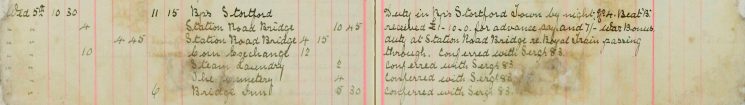 Wed 5th 10 30 11 15 Bps Stortford Duty in Bps Stortford Town by night. No 4. Beat "B"
" " 4 Station Road Bridge 10 45 received £1-10-0. for advance pay and 7/- War Bonus
" " 4 45 Station Road Bridge 4 15 duty at Station Road Bridge re Royal Train passing
" " 10 Corn Exchange 12 through. Conferred with Sergt 83
" " Steam Laundry 2 Conferred with Sergt 83.
" " The Cemetery 4 Conferred with Sergt 83
" " 6 Bridge Inn 5 30 Conferred with Sergt 83.